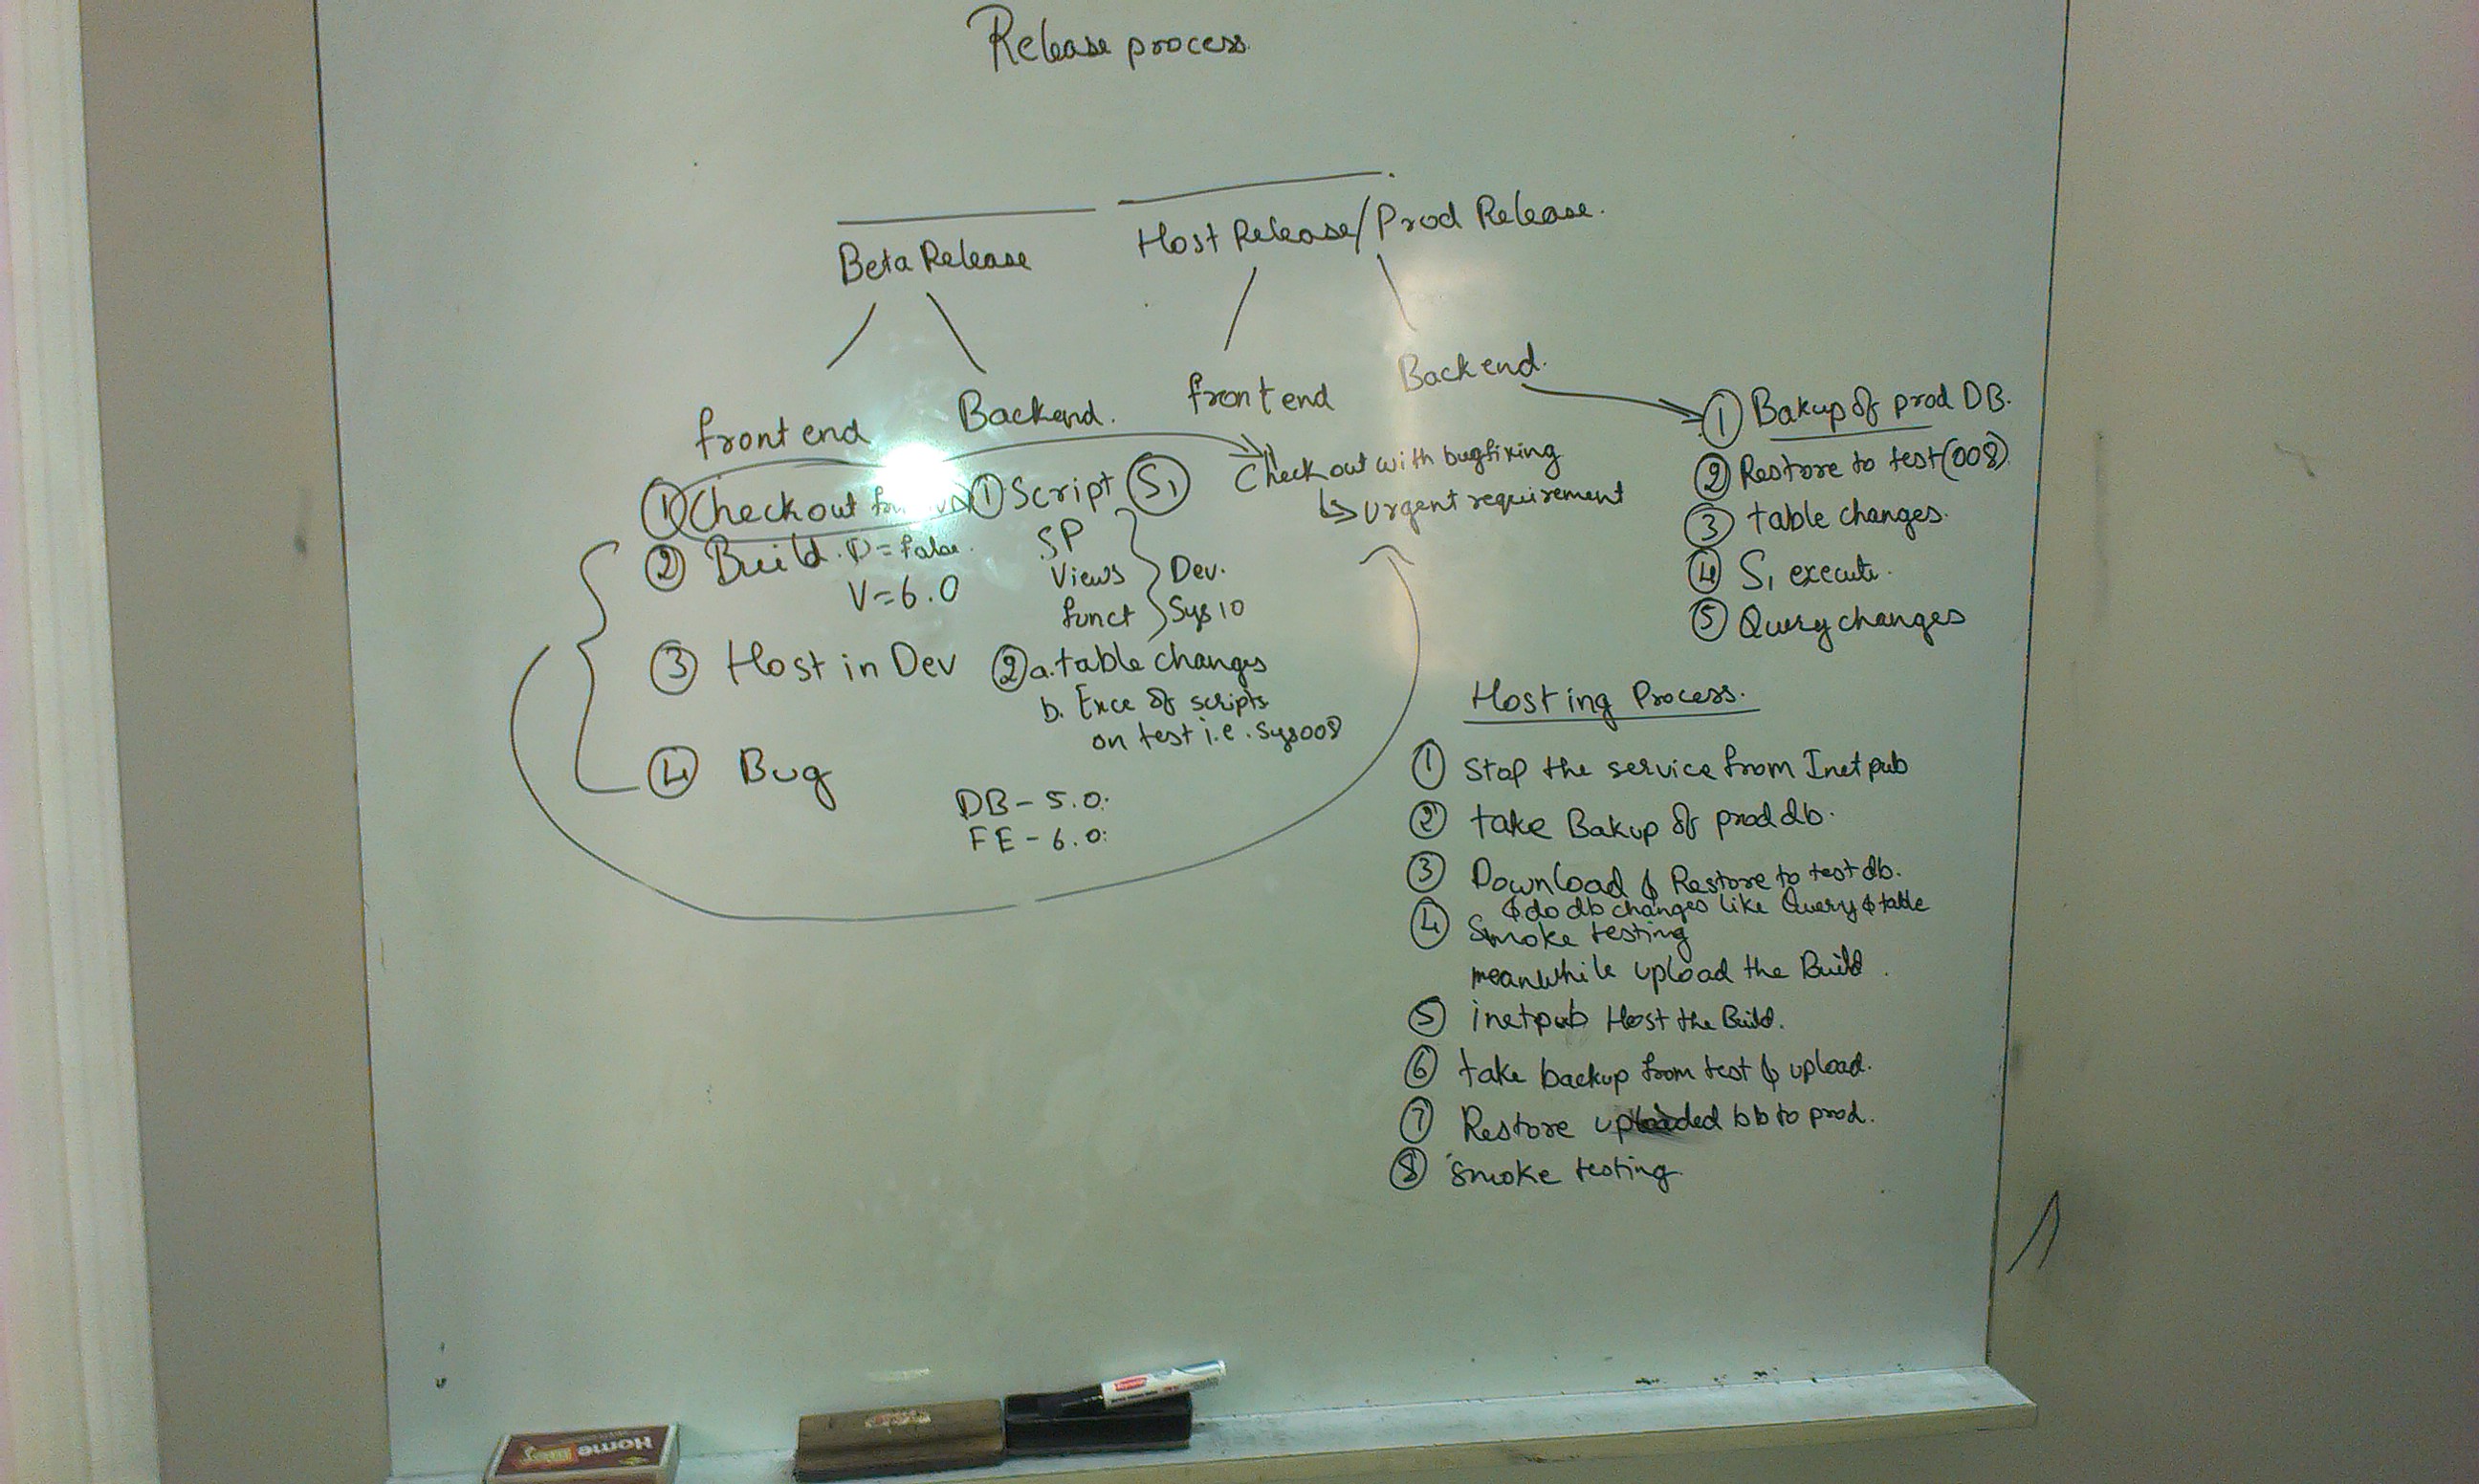 Release process
Beta Release
Host Release/Prod Release.
front end
Backend.
front end
Backend.
① Checkout
② Build. D = false.
V = 6.0
③ Host in Dev
④ Bug
① Script S1
SP
Views
funct
Dev.
Sys 10
② a. table changes
b. Exce of scripts
on test i.e. Sys008
DB - 5.0.
FE - 6.0.
Check out with bugfixing
↳ urgent requirement
① Bakup of prod DB.
② Restore to test (008)
③ table changes.
④ S1 execute.
⑤ Query changes
Hosting Process.
① Stop the service from Inetpub
② take Bakup of prod db.
③ Download & Restore to test db.
& do db changes like Query & table
④ Smoke testing
meanwhile upload the Build.
⑤ inetpub Host the Build.
⑥ take backup from test & upload.
⑦ Restore uploaded bb to prod.
⑧ Smoke testing.
Home